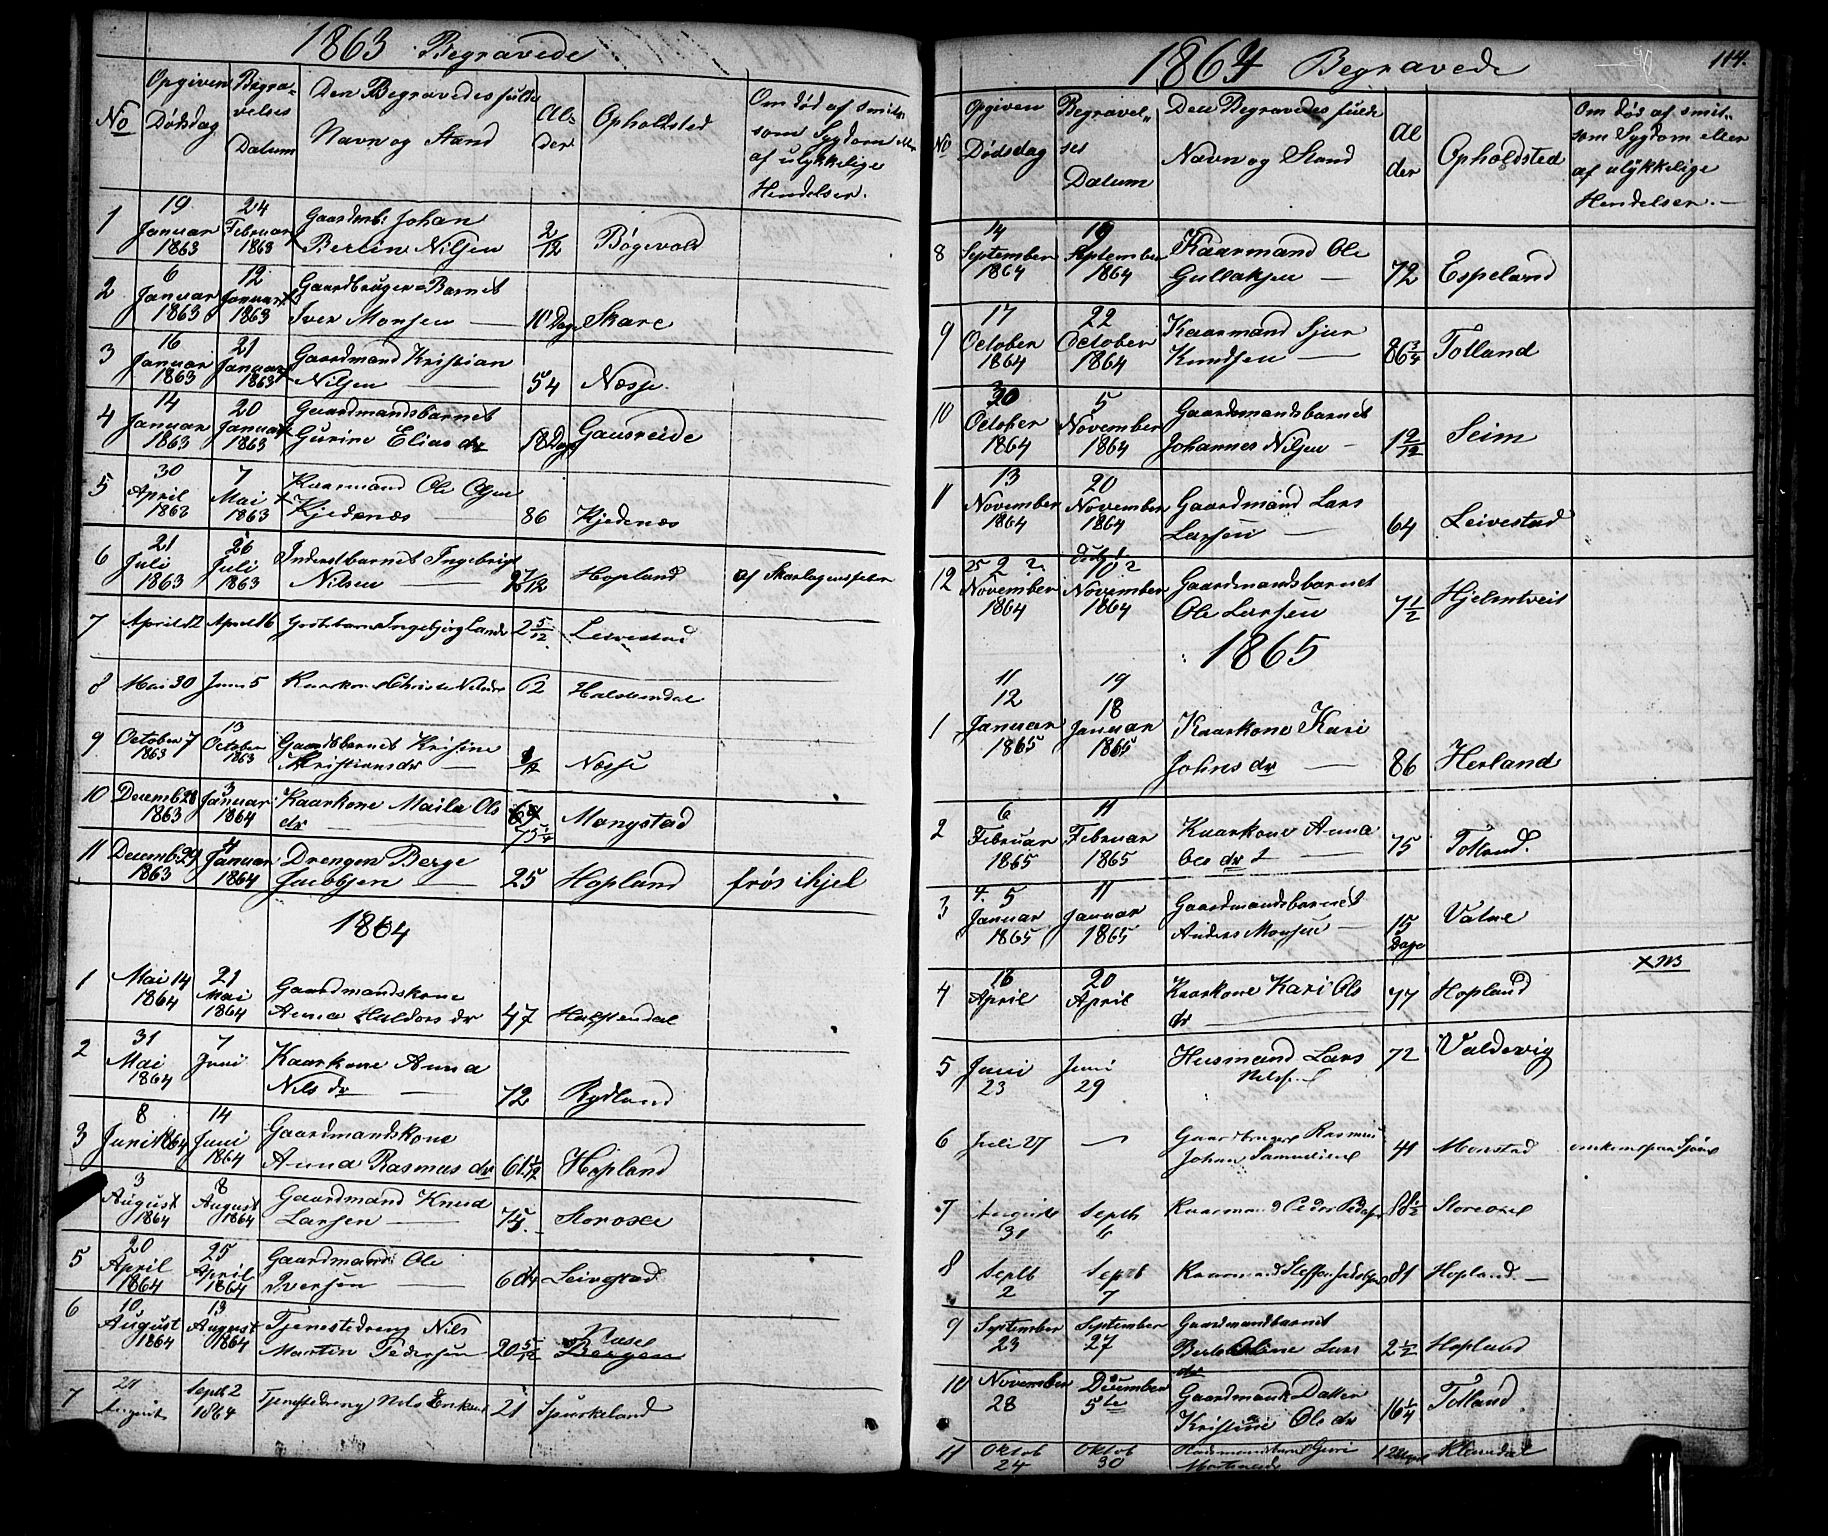 1863 Begravede
No
Opgiven Dødsdag
Begravelses Datum
Den Begravedes fulde Navn og Stand
Alder
Opholdsted
Om død af smitsom Sygdom eller af ulykkelige Hendelser.
1 19 Januar 1863 24 Februar 1863 Johan Bertin Nilsen 2/12 Bøgevold
2 6 Januar 1863 12 Januar 1863 Gaardbruger Barnet Iver Monsen 10 Dage Skare
3 16 Januar 1863 21 Januar 1863 Gaardmand Kristian Nilsen 54 Næsse
4 14 Januar 1863 20 Januar 1863 Gaardmandsbarnet Gurine Elias dr 18 Dage Gausreide
5 30 April 1863 7 Mai 1863 Kaarmand Ole Kjedenæs 86 Kjedenæs
6 21 Juli 1863 26 Juli 1863 Inderstbarnet Ingebrigt Nilsen Hopland af Skarlagensfeber
7 April 12 April 16 2 5/12 Leivestad
8 Mai 30 Juni 5 Kaarkone Christi Nilsdr 62 Halstendal
9 October 7 1863 13 October 1863 Gaardsbarnet Kristine Kristiansdr Næsse
10 Decemb 28 1863 3 Januar 1864 Kaarkone Maila Ols dr 75 Mongstad
11 Decemb 29 1863 4 Januar 1864 Drengen Berge Jacobsen 25 Hopland frøs ihjel
1864
1 Mai 14 1864 21 Mai 1864 Gaardmandskone Anna Haldors dr 47 Halstendal
2 31 Mai 1864 7 Juni Kaarkone Anna Nils dr 72 Rydland
3 8 Juni 1864 14 Juni 1864 Gaardmandskone Anna Rasmus dr Hopland
3 August 1864 8 August 1864 Gaardmand Knud Larsen 75
5 20 April 1864 25 April 1864 Gaardmand Ole Iversen
6 10 August 1864 13 August 1864 Tjenestedreng Nils Martin Pedersen 20 5/12 Bergen
7 August Septb 2 1864 Tjenestedreng Nils 21 Spurkeland
1864 Begravede
114.
No
Opgiven Dødsdag
Begravelses Datum
Den Begravedes fulde Navn og Stand
Alder
Opholdsted
Om død af smitsom Sygdom eller af ulykkelige Hendelser.
8 14 September 1864 19 September 1864 Kaarmand Ole Gullaksen 72 Espeland
9 17 October 1864 22 October 1864 Kaarmand Sjur Knudsen 86 3/4 Totland
10 30 October 1864 5 November 1864 Gaardmandsbarnet Johannes Nilsen 1 2/12 Seim
11 13 November 1864 20 November 1864 Gaardmand Lars Larsen 64 Leivestad
12 25 2 ? November 1864 10 ? November 1864 Gaardmandsbarnet Ole Larsen 7 1/2 Hjelmtveit
1865
1 11 12 Januar 1865 19 18 Januar 1865 Kaarkone Kari Johns dr 86 Herland
2 6 Februar 1865 11 Februar 1865 Kaarkone Anna Ols dr 75 Totland.
3 4. 5 Januar 1865 11 Januar 1865 Gaardmandsbarnet Anders Monsen 15 Dage Vatne
x NB
4 16 April 20 April Kaarkone Kari Ols dr 77 Hopland
5 Juni 23 Juni 29 Husmand Lars Nilsen 72 Valdevig
6 Juli 27 Gaardbruger Rasmus Johan Samuelsen 44 Monstad
7 August 31 Septb 6 Kaarmand Peder
8 Septb 2 Septb 7 Kaarmand Steffen 81 Hopland
9 September 23 September 27 Gaardmandbarnet Lars dr 2 1/2 Hopland
10 November 28 December 5te Gaardmands Datter Kristiane Ols dr 16 1/4 Totland.
11 Oktob 24 Oktob 30 Guri